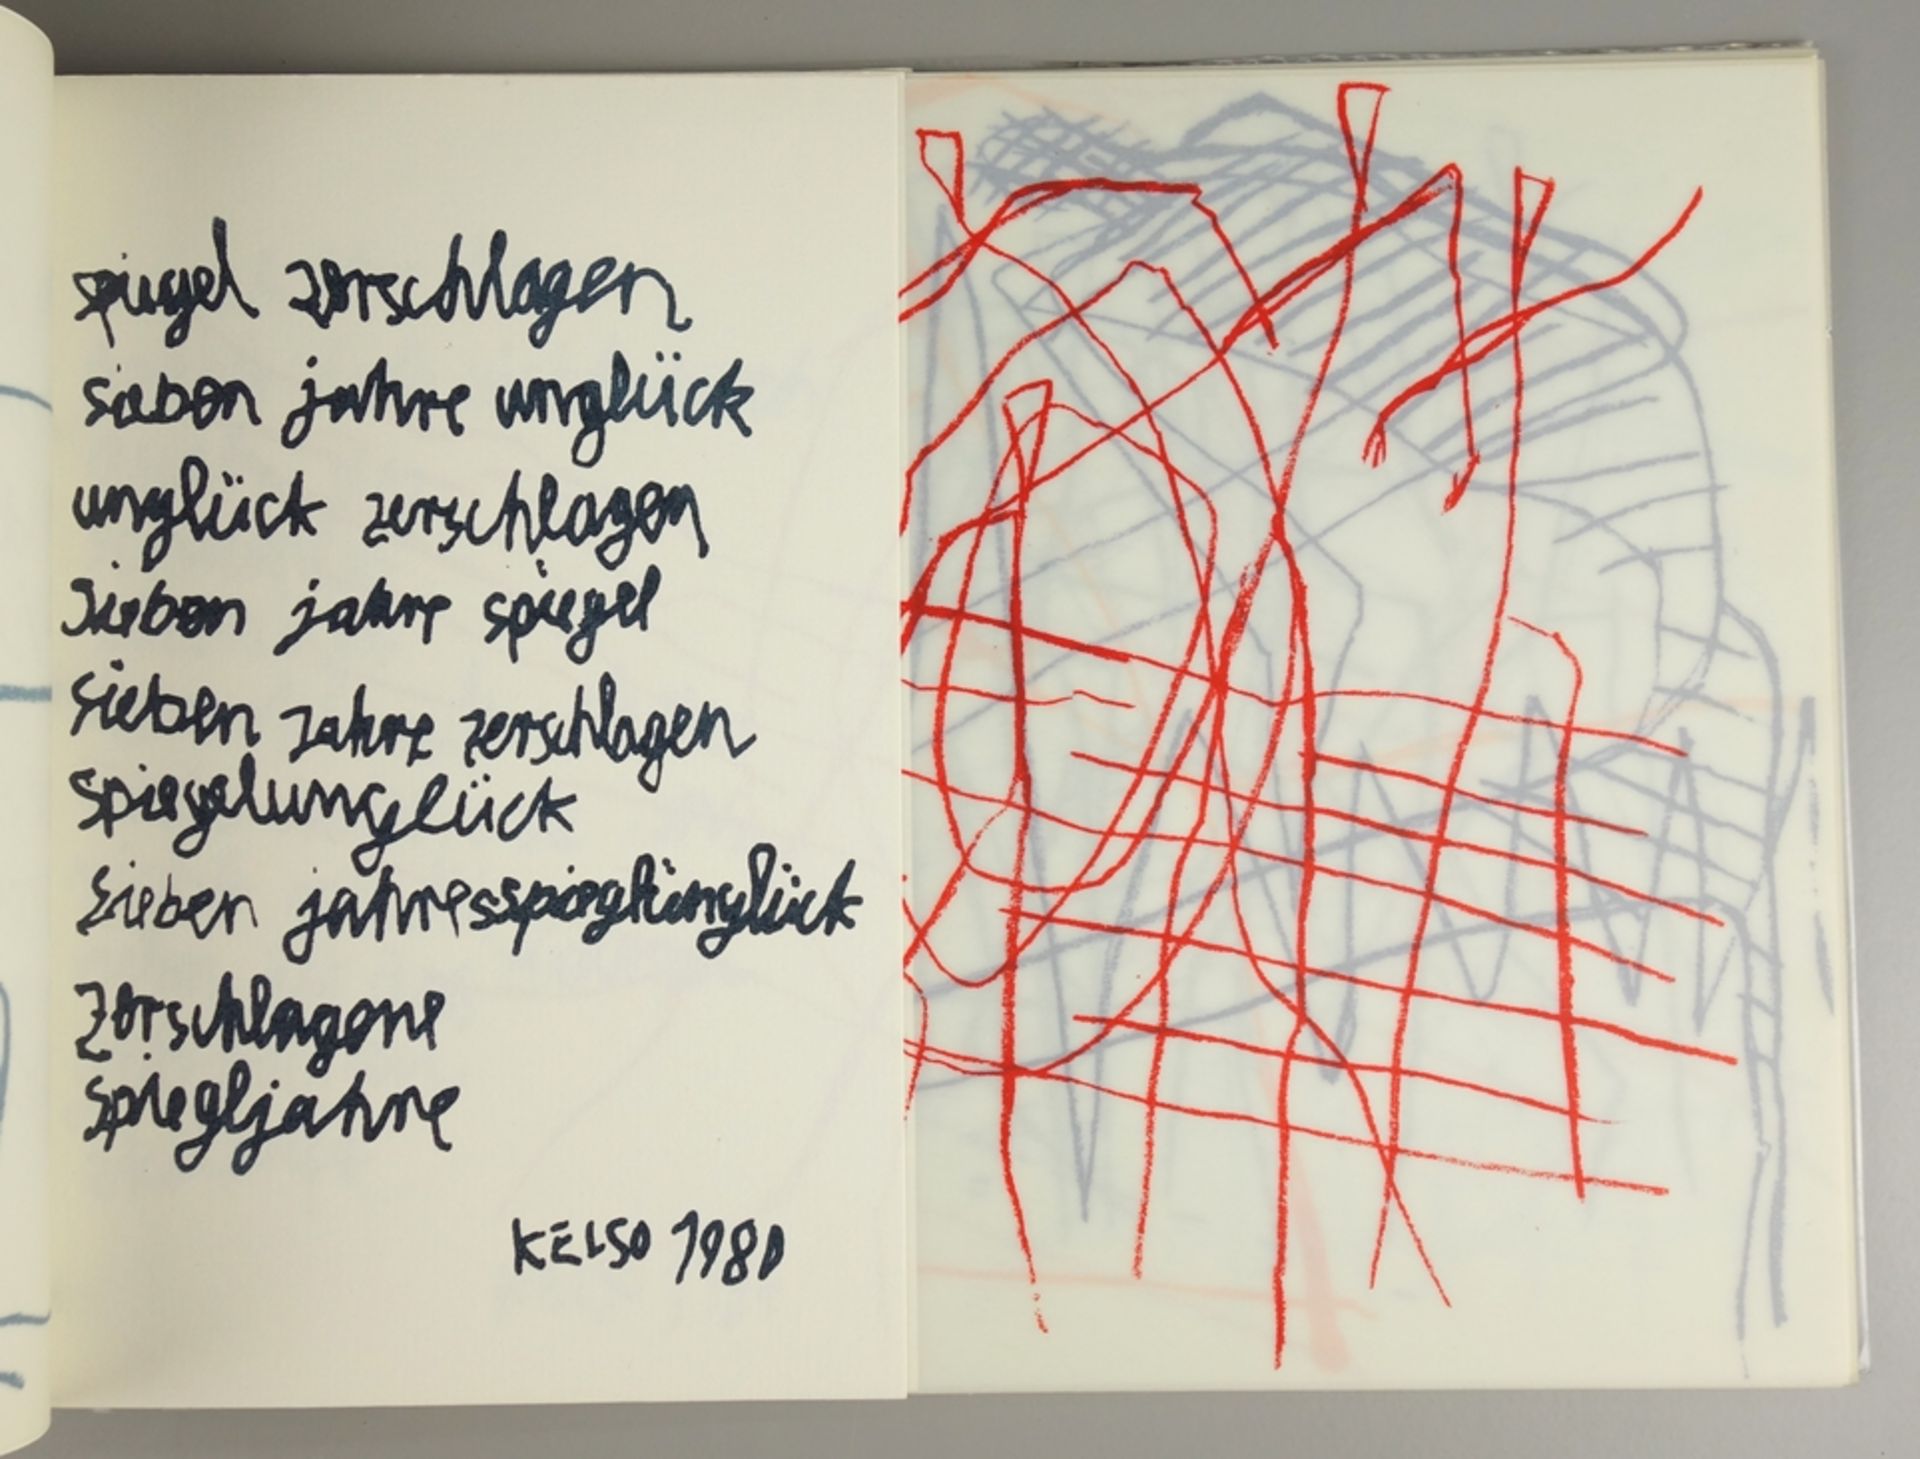 spiegel zerschlagen
sieben jahre unglück
unglück zerschlagen
sieben jahre spiegel
sieben jahre zerschlagen
spiegelunglück
sieben jahres
zerschlagene
spiegljahre
KELSO 1980